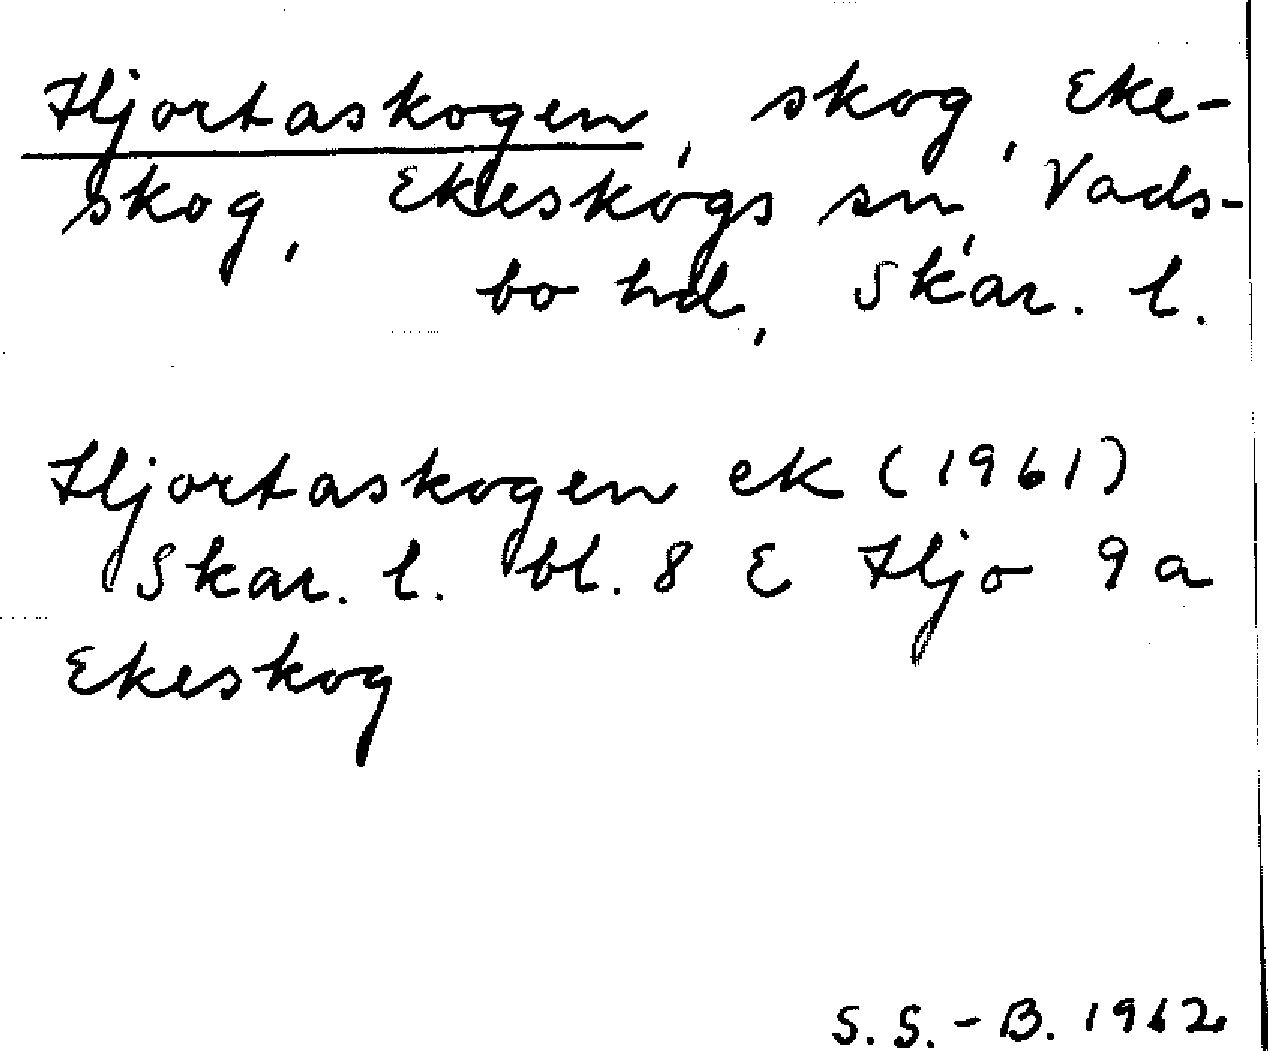 Hjortaskogen, skog, Eke-
skog, Ekeskogs sn, Vads-
bo hd, Skar. l.
Hjortaskogen ek (1961)
Skar. l. bl. 8 E Hjo 9 a
Ekeskog
S. S. - B. 1962